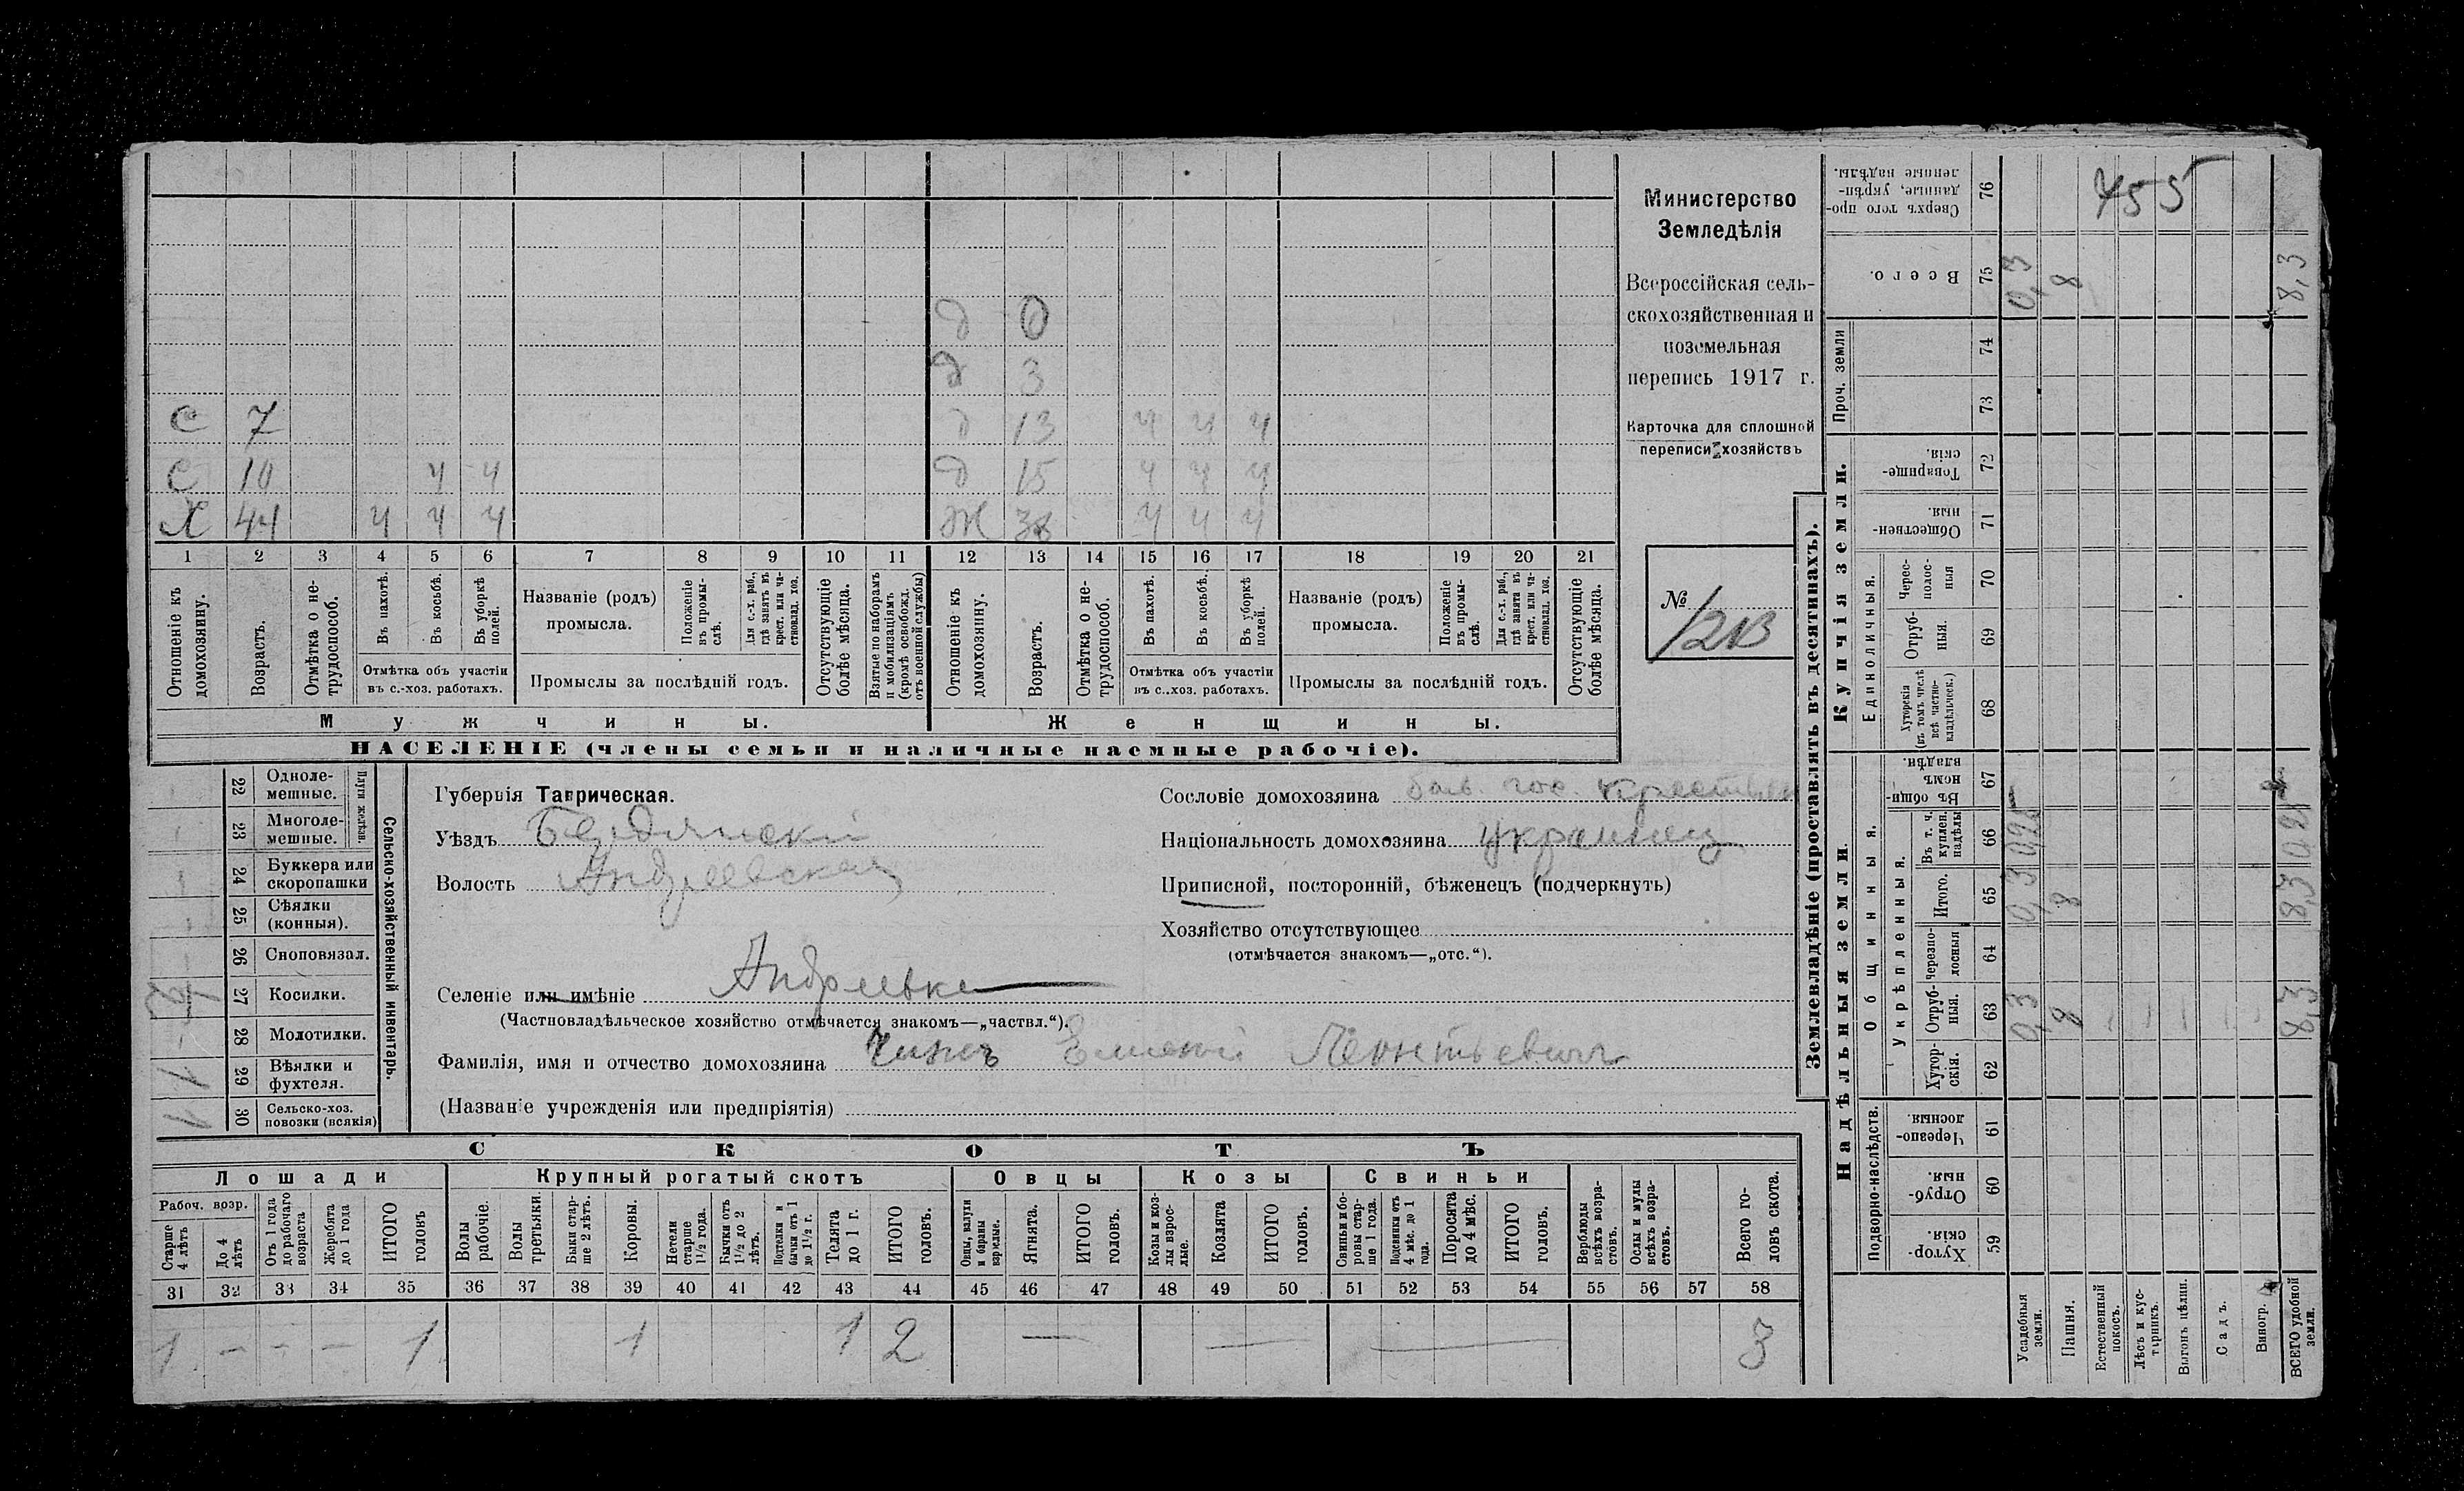 455
д 0
д 3
С 7 д 13 ч ч ч
С 10 ч ч д 15 ч ч ч
Х 44 ч ч ч Ж 38 ч ч ч
1 2 3 4 5 6 7 8 9 10 11 12 13 14 15 16 17 18 19 20 21
Отношеніе къ домохозяину.
Возрастъ.
Отмѣтка о нетрудоспособ.
Въ пахотѣ.
Въ косьбѣ.
Въ уборкѣ полей.
Отмѣтка объ участіи
въ с.-хоз. работахъ.
Названіе (родъ)
промысла.
Положеніе въ промыслѣ.
Для с.-х. раб., гдѣ занятъ въ крест. или частновлад. хоз.
Промыслы за послѣдній годъ.
Отсутствующіе болѣе мѣсяца.
Взятые по наборамъ и мобилизаціямъ (кромѣ освобожд. отъ военной службы)
Отношеніе къ домохозяину.
Возрастъ.
Отмѣтка о нетрудоспособ.
Въ пахотѣ.
Въ косьбѣ.
Въ уборкѣ полей.
Отмѣтка объ участіи
въ с..хоз. работахъ.
Названіе (родъ)
промысла.
Положеніе въ промыслѣ.
Для с.-х. раб., гдѣ занята въ крест. или частновлад. хоз.
Промыслы за послѣдній годъ.
Отсутствующіе болѣе мѣсяца.
Мужчины. Женщины.
НАСЕЛЕНІЕ (члены семьи и наличные наемные рабочіе).
Министерство
Земледѣлія
Всероссійская сель-
скохозяйственная и
поземельная
перепись 1917 г.
Карточка для сплошной
переписи хозяйствъ
№
Сельско-хозяйственный инвентарь.
Плуги желѣзн.
22 Однолемешные.
23 Многолемешные.
24 Буккера или скоропашки
25 Сѣялки (конныя).
26 Сноповязал.
27 Косилки.
28 Молотилки.
29 Вѣялки и фухтеля. 1
30 Сельско-хоз. повозки (всякія) 1
Губернія Таврическая.
Уѣздъ Бердянскій
Волость Андреевская
Селеніе или имѣніе Андреевка
(Частновладѣльческое хозяйство отмѣчается знакомъ—„частвл.“).
Фамилія, имя и отчество домохозяина Леонтьевичъ
(Названіе учрежденія или предпріятія)
Сословіе домохозяина быв. гос. крестьян
Національность домохозяина украинец
Приписной, посторонній, бѣженецъ (подчеркнуть)
Хозяйство отсутствующее
(отмѣчается знакомъ—„отс.“).
СКОТЪ
Лошади Крупный рогатый скотъ Овцы Козы Свиньи
Рабоч. возр.
Старше 4 лѣтъ
До 4 лѣтъ
Отъ 1 года до рабочаго возраста
Жеребята до 1 года
ИТОГО головъ
Волы рабочіе.
Волы третьяки.
Быки старше 2 лѣтъ.
Коровы.
Нетели старше 1½ года.
Бычки отъ 1½ до 2 лѣтъ.
Подтелки и бычки отъ 1 до 1½ г.
Телята до 1 г.
ИТОГО головъ.
Овцы, валухи и бараны взрослые.
Ягнята.
ИТОГО головъ.
Козы и козлы взрослые.
Козлята
ИТОГО головъ.
Свиньи и боровы старше 1 года.
Подсвинки отъ 4 мѣс. до 1 года.
Поросята до 4 мѣс.
ИТОГО головъ.
Верблюды всѣхъ возрастовъ.
Ослы и мулы всѣхъ возрастовъ.
Всего головъ скота.
31 32 33 34 35 36 37 38 39 40 41 42 43 44 45 46 47 48 49 50 51 52 53 54 55 56 57 58
1 - - - 1 1 1 2 — — — 3
Землевладѣніе (проставлять въ десятинахъ).
Надѣльныя земли Купчія земли. Проч. земли
Подворно-наслѣдств. Общинныя. Единоличныя.
Укрѣпленныя.
59 Хуторскія.
60 Отрубныя.
61 Черезполосныя
62 Хуторскія.
63 Отрубныя. 0,3 8 8,3
64 Черезполосныя
65 Итого. 0,3 8 8,3
66 Въ т. ч. куплен. надѣлы
67 Въ общинномъ владѣн.
68 Хуторскія (въ томъ числѣ всѣ частновладѣльческ.)
69 Отрубныя.
70 Чересполосныя
71 Общественныя.
72 Товарищескія.
73
74
75 Всего. 0,3 8 8,3
76 Сверхъ того проданные, укрѣпленные надѣлы.
Усадебныя земли.
Пашня.
Естественный покосъ.
Лѣсъ и кустарникъ.
Выгонъ цѣлин.
Садъ.
Виногр.
ВСЕГО удобной земли.